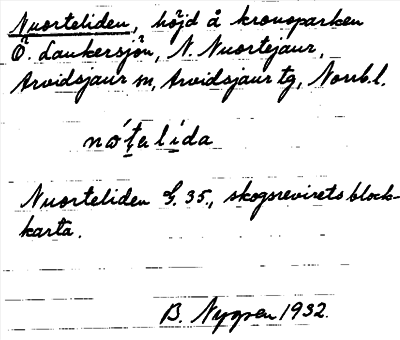 Nuorteliden, höjd å kronoparken
Ö. Laukersjön, N. Nuortejaur,
Arvidsjaur sn, Arvidsjaur tg, Norrb. l.
nó̱təli̱da
Nuorteliden G. 35., skogsrevirets block-
karta.
B. Nygren 1932.